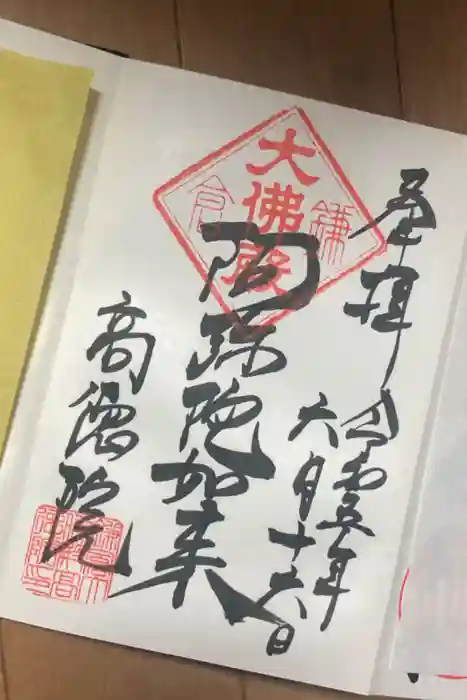 奉拝
令和五年
六月十六日
大佛殿
鎌倉
阿弥陀如来
高徳院